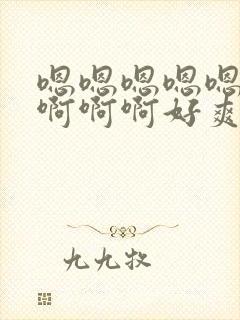 嗯嗯嗯嗯嗯
啊啊啊好爽
九九牧